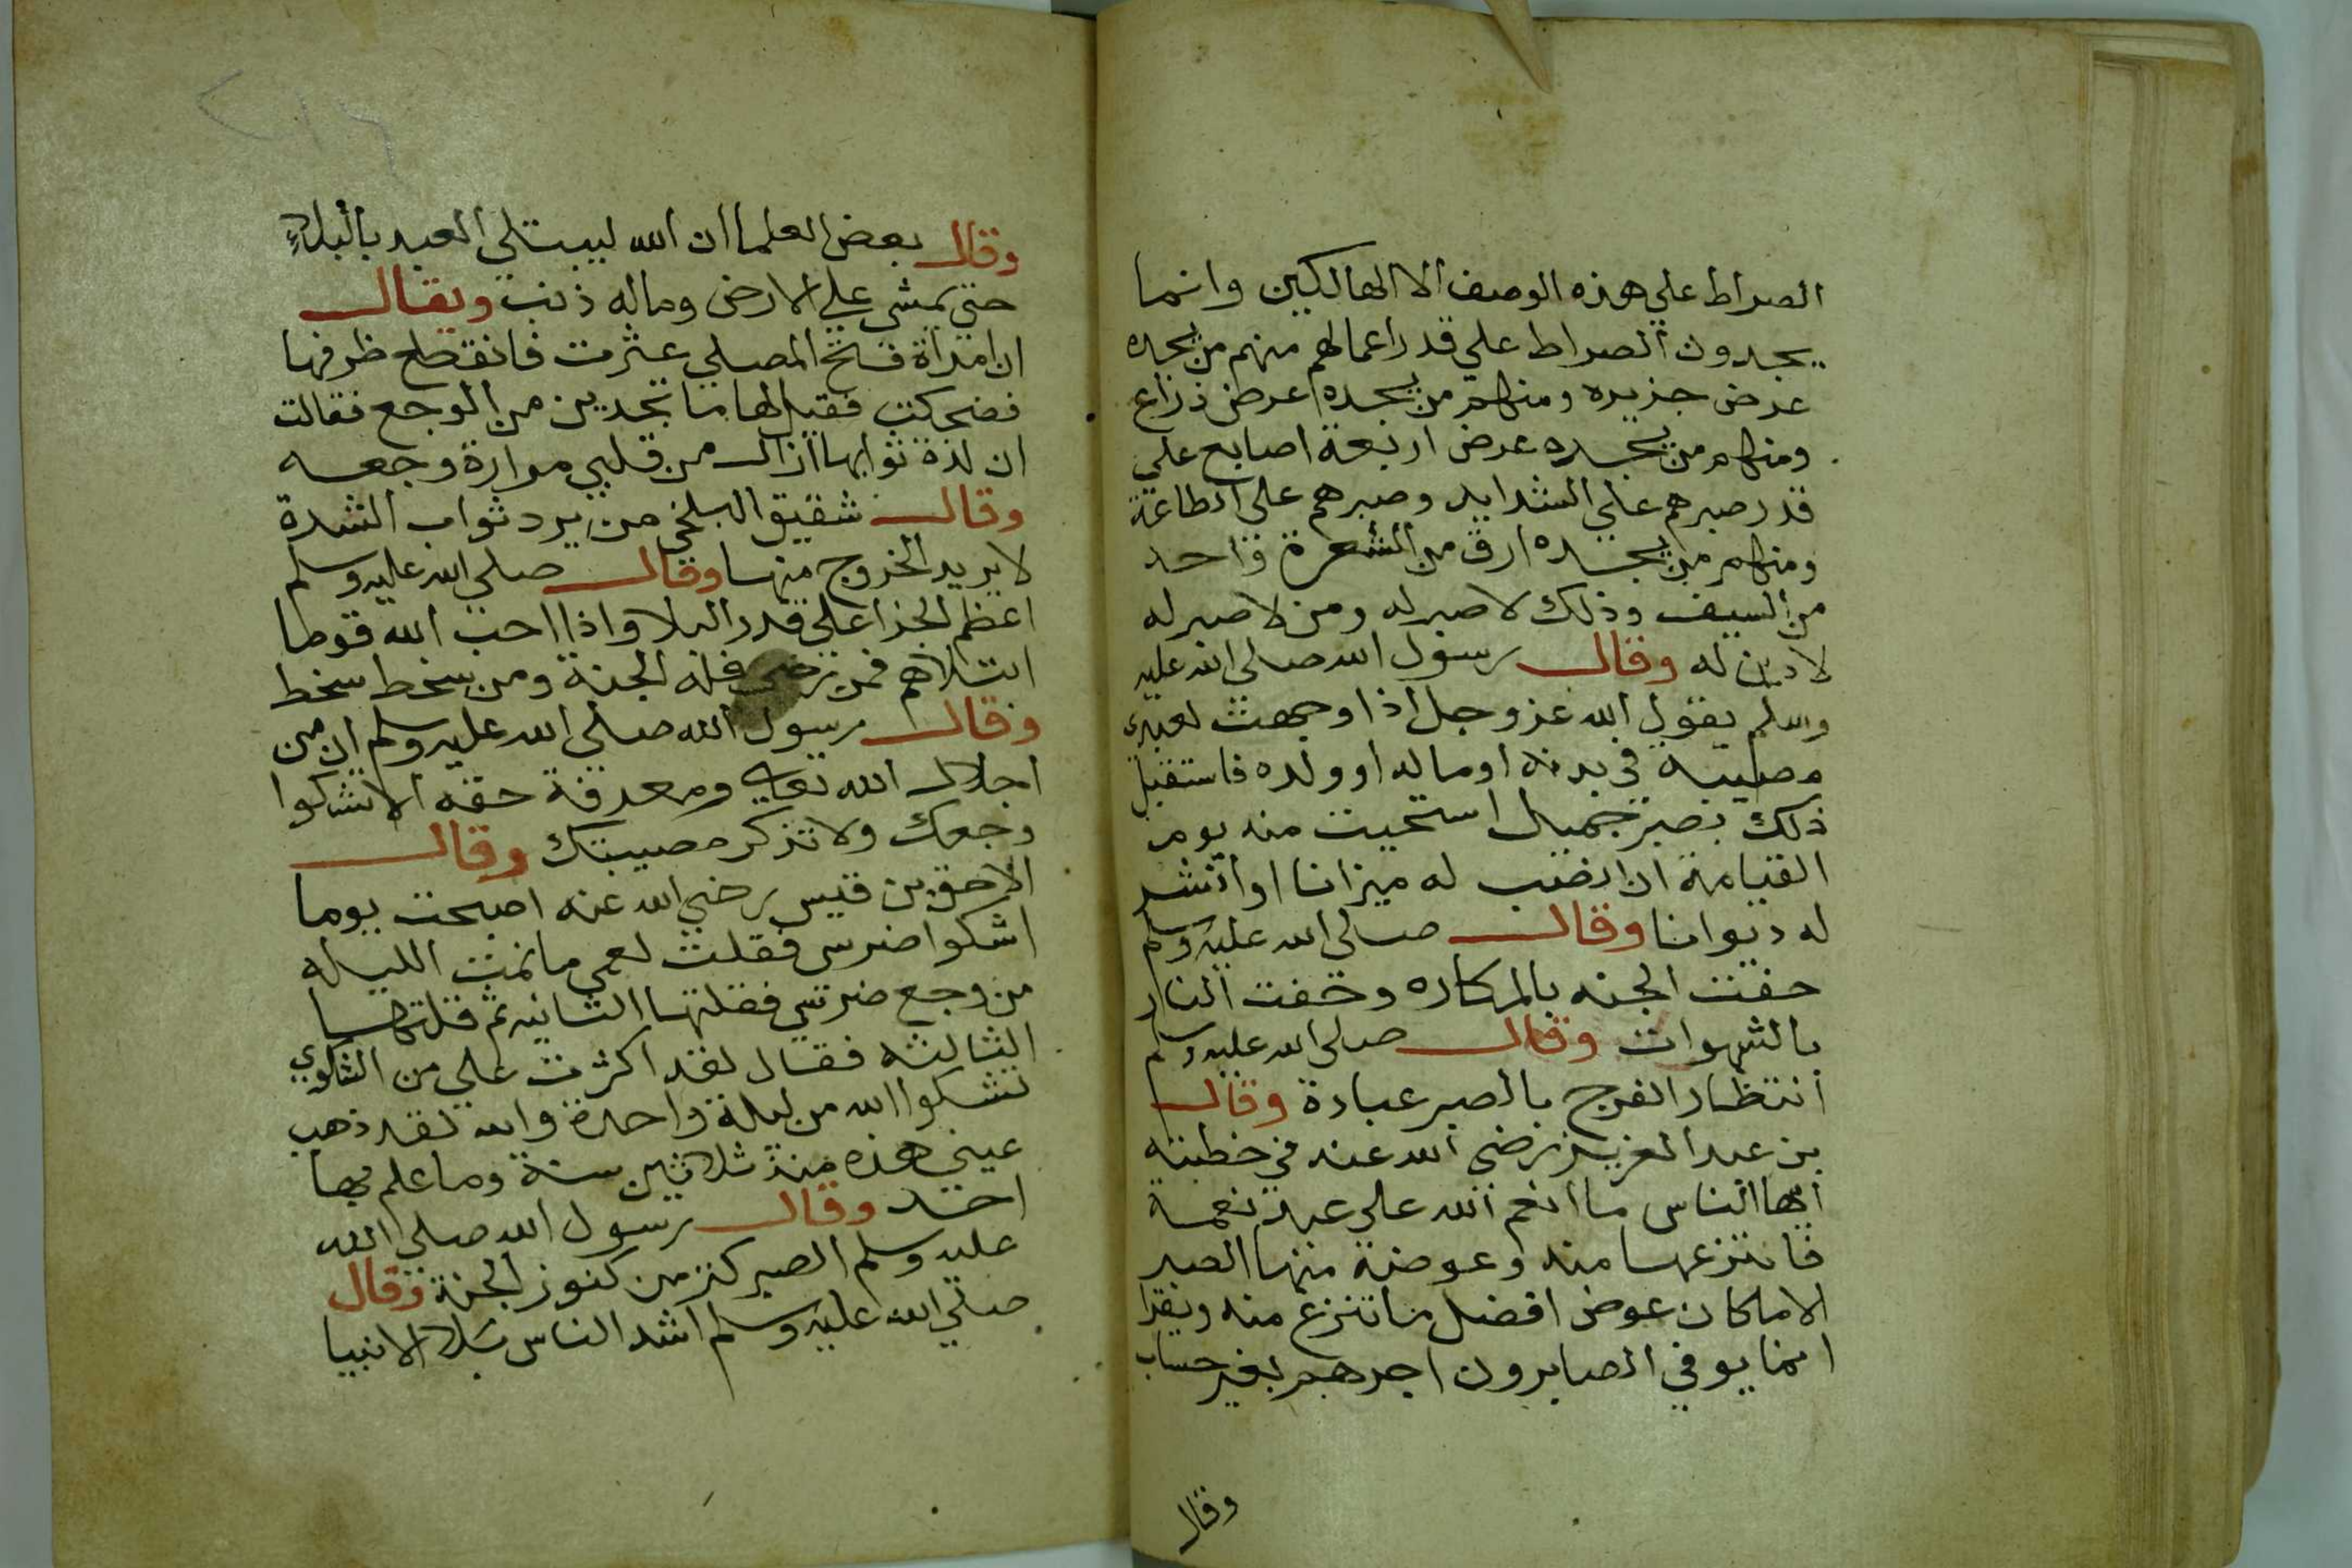 الصراط علي هذه الوصف الا الهالكين وانما
يجدون الصراط علي قدر اعمالهم منهم من يجده
عرض جزيره ومنهم من يجده عرض ذراع
ومنهم من يجده عرض اربعة اصابع علي
قدر صبرهم علي الشدايد وصبرهم علي الطاعة
ومنهم من يجده ارق من الشعرة واحد
من السيف وذلك لا صبر له ومن لا صبر له
لا دين له وقال رسول الله صلي الله عليه
وسلم يقول الله عز وجل اذا وجهت لعبدي
مصيبة في بدنه او ماله او ولده فاستقبل
ذلك بصبر جميل استحيت منه يوم
القيامة ان انصب له ميزانا او انشر
له ديوانا وقال صلي الله عليه وسلم
حفت الجنه بالمكاره وحفت النار
بالشهوات وقال صلي الله عليه وسلم
انتظار الفرج بالصبر عبادة وقال
بن عبد العزيز رضي الله عنه في خطبته
ايها الناس ما انعم الله علي عبد نعمة
فانتزعها منه وعوضه منها الصبر
الا ما كان عوض افضل مما تنزع منه ويقرا
انما يوفي الصابرون اجرهم بغير حساب
وقال
٢١٤
وقال بعض العلما ان الله ليبتلي العبد بالبلاء
حتي يمشي علي الارض وماله ذنب ويقال
ان امراة فتح المصلي عثرت فانقطع ظرفها
فضحكت فقيل لها ما تجدين من الوجع فقالت
ان لذة ثوابها ازال من قلبي مرارة وجعه
وقال شقيق البلخي من يرد ثواب الشدة
لا يريد الخروج منها وقال صلي الله عليه وسلم
اعظم الجزا علي قدر البلا واذا احب الله قوما
ابتلاهم فمن رضي فله الجنة ومن سخط سخط
وقال رسول الله صلي الله عليه وسلم ان من
اجلال الله تعالي ومعرفة حقه الا تشكوا
وجعك ولا تذكر مصيبتك وقال
الاحق بن قيس رضي الله عنه اصبحت يوما
اشكوا ضرس فقلت لعمي ما نمت الليله
من وجع ضرسي فقلتها الثانيه ثم قلتها
الثالثه فقال لقد اكثرت علي من الشكوي
تشكوا الله من ليلة واحدة والله لقد ذهب
عيني هذه منذ ثلاثين سنة وما علم بها
احد وقال رسول الله صلي الله
عليه وسلم الصبر كنز من كنوز الجنة وقال
صلي الله عليه وسلم اشد الناس بلا الانبيا